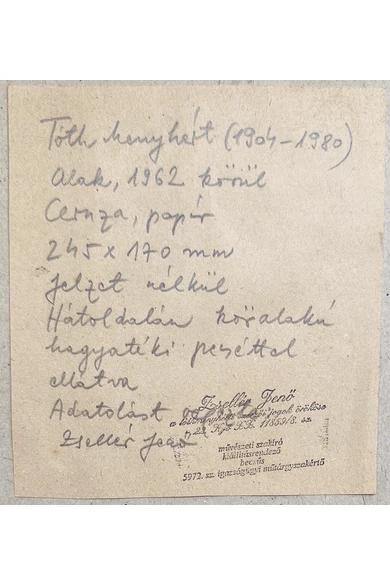 Tóth Menyhért (1904–1980)
Alak, 1962 körül
Ceruza, papír
245 x 170 mm
Jelzet nélkül
Hátoldalán köralakú
hagyatéki peséttel
ellátva
Adatolást
Zsellér Jenő
Zsellér Jenő
jogok örököse
művészeti szakíró
kiállításrendező
becsüs
5972. sz. igazságügyi műtárgyszakértő